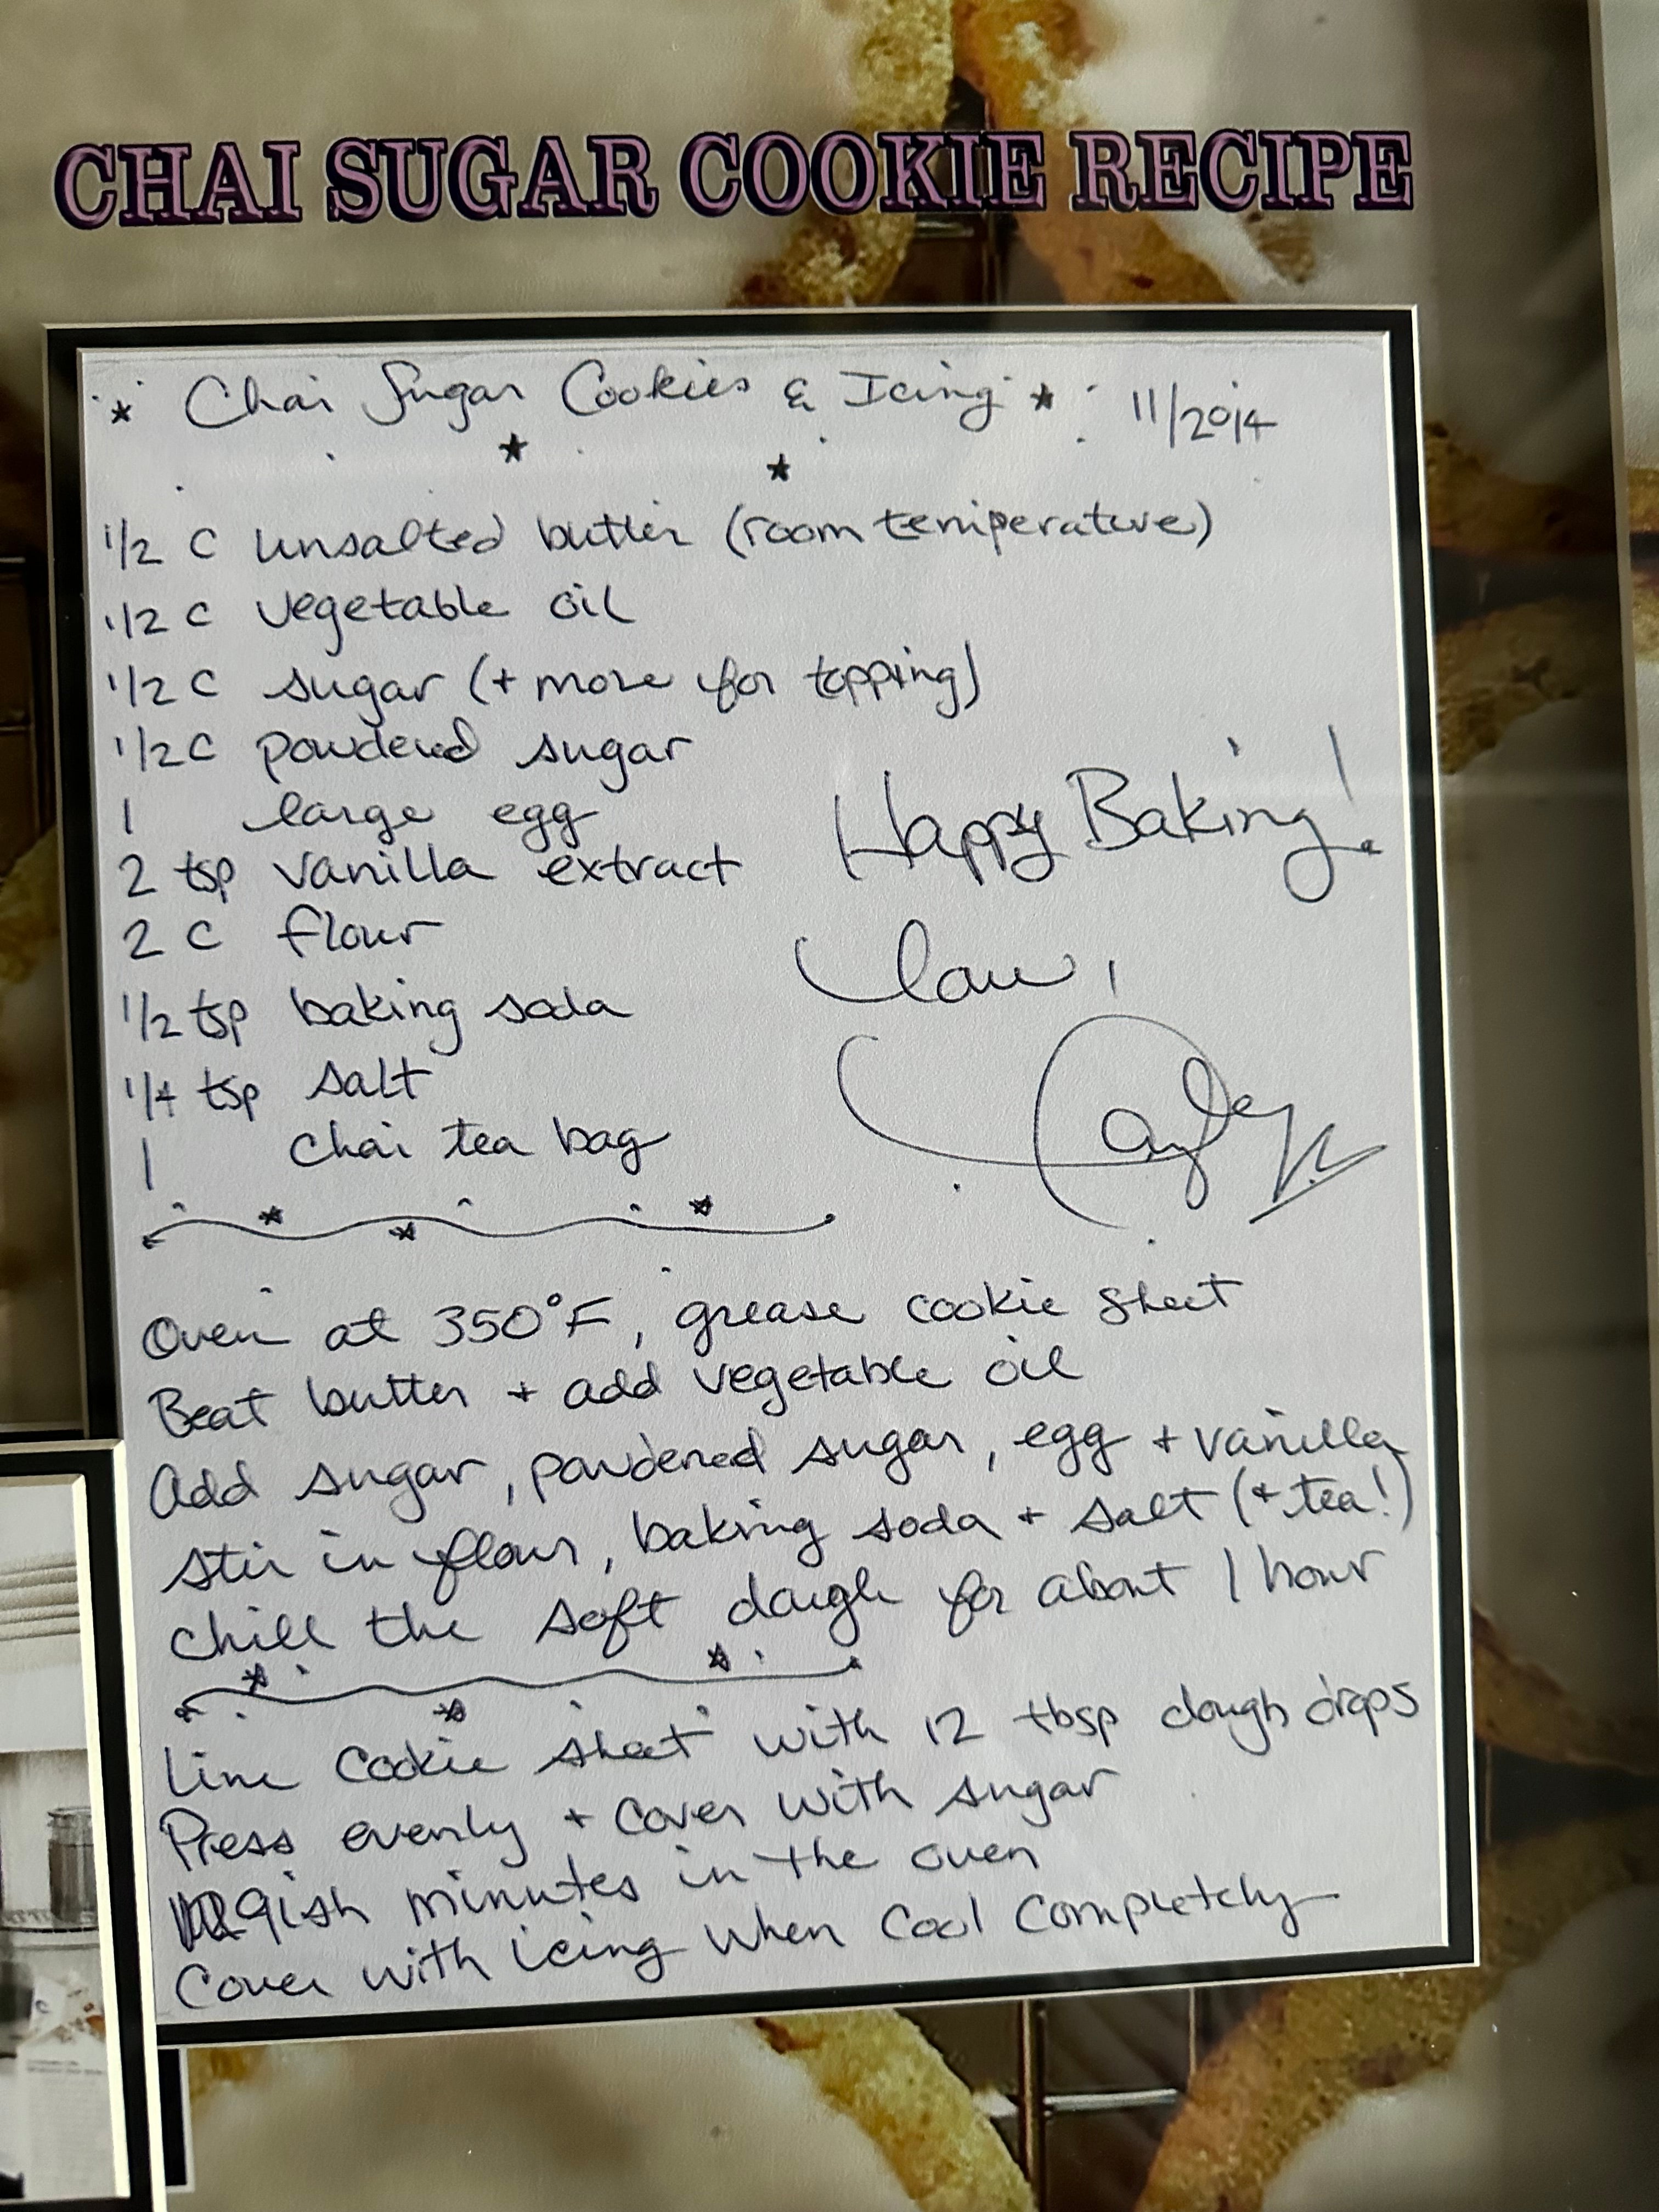 CHAI SUGAR COOKIE RECIPE
Chai Sugar Cookies & Icing 11/2014
1/2 C unsalted butter (room temperature)
1/2 C vegetable oil
1/2 C sugar (+ more for topping)
1/2 C powdered sugar
1 large egg
2 tsp vanilla extract
2 C flour
1/2 tsp baking soda
1/4 tsp salt
1 chai tea bag
Happy Baking!
Oven at 350°F, grease cookie sheet
Beat butter + add vegetable oil
Add sugar, powdered sugar, egg + vanilla
Stir in flour, baking soda + salt (+ tea!)
Chill the soft dough for about 1 hour
Line cookie sheet with 12 tbsp dough drops
Press evenly + cover with sugar
9ish minutes in the oven
Cover with icing when cool completely